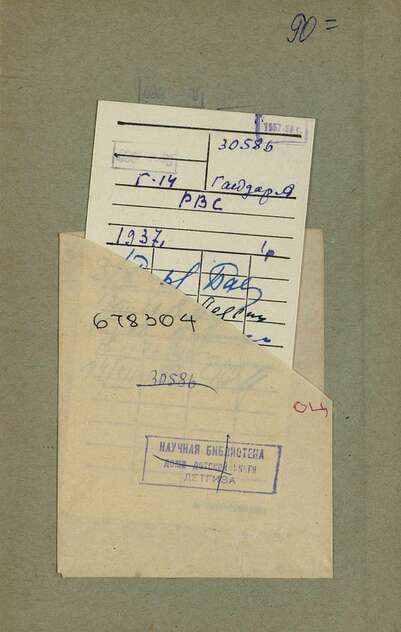 90=
1957-58 г.
30586
Г-14 Гайдар А
РВС
1937, 1р
678304
30586
ОЦ
НАУЧНАЯ БИБЛИОТЕКА
ДОМА ДЕТСКОЙ КНИГИ
ДЕТГИЗА